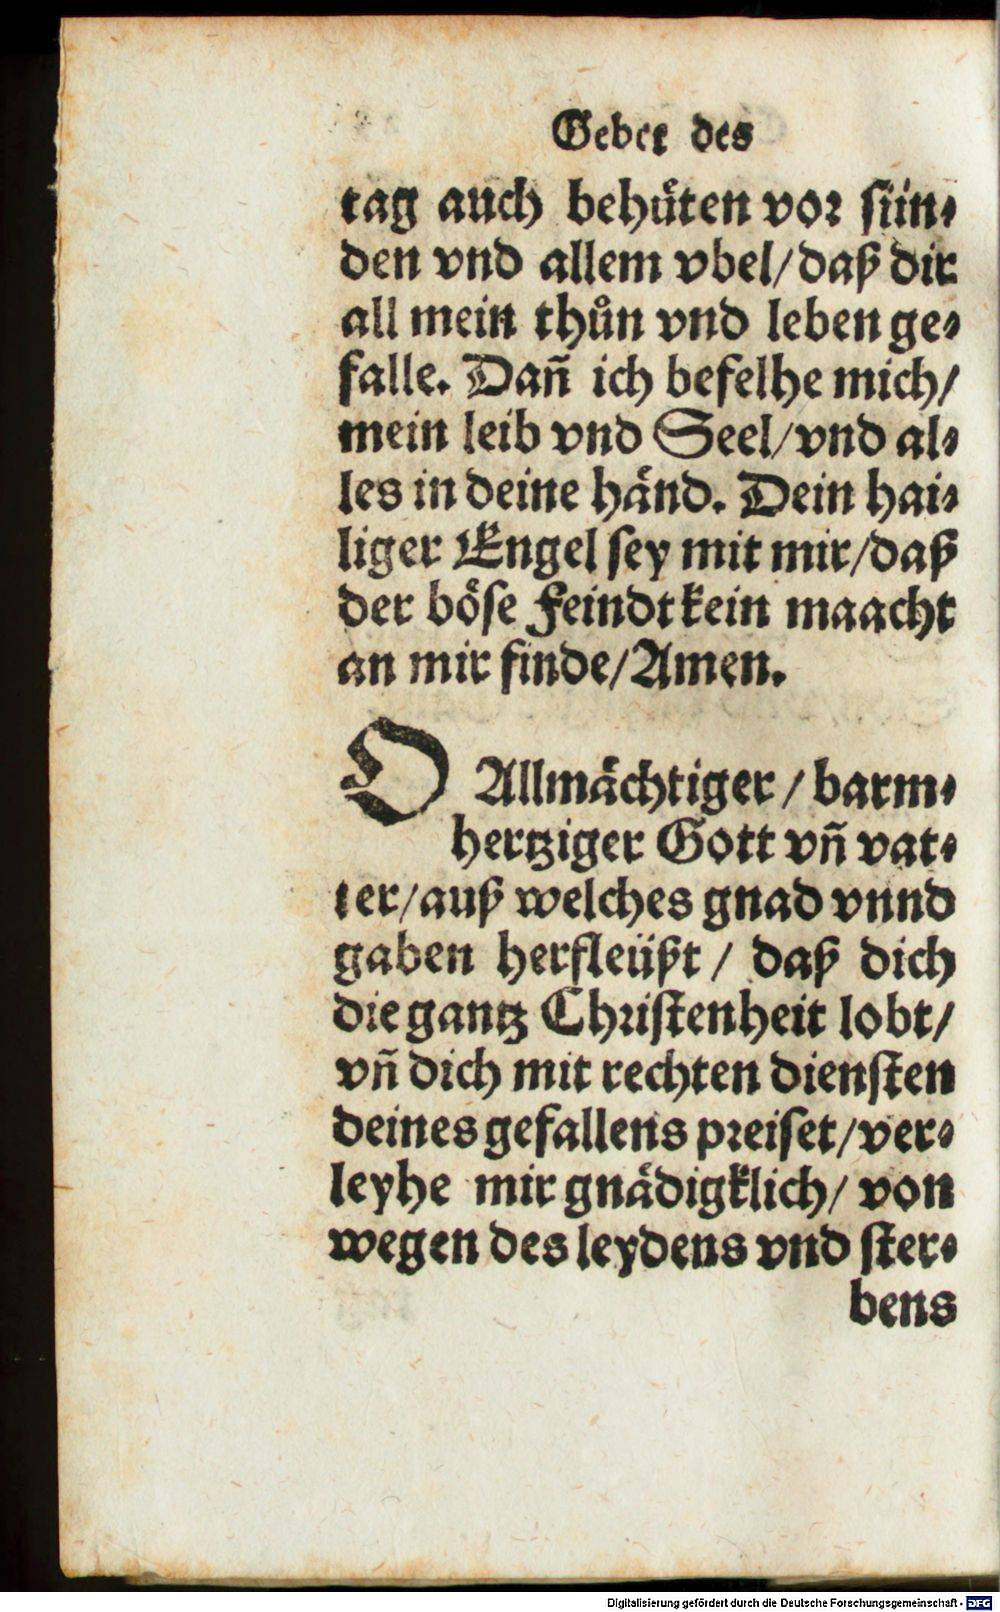 Gebet des
tag auch behuͤten vor sün⸗
den vnd allem vbel/ daß dir
all mein thůn vnd leben ge⸗
falle. Dañ ich befelhe mich/
mein leib vnd Seel/ vnd al⸗
les in deine haͤnd. Dein hai⸗
liger Engel sey mit mir/ daß
der boͤse Feindt kein maacht
an mir finde/ Amen.
O Allmaͤchtiger / barm⸗
hertziger Gott vñ vat⸗
ter/ auß welches gnad vnnd
gaben herfleüßt / daß dich
die gantz Christenheit lobt/
vñ dich mit rechten diensten
deines gefallens preiset/ ver⸗
leyhe mir gnaͤdigklich/ von
wegen des leydens vnd ster⸗
bens
Digitalisierung gefördert durch die Deutsche Forschungsgemeinschaft - DFG